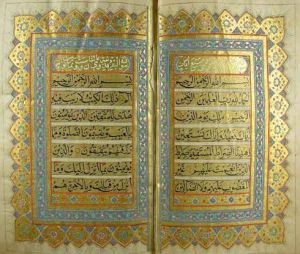 بسم الله الرحمن الرحيم
الحمد لله رب العلمين
الرحمن الرحيم ملك يوم الدين
اياك نعبد واياك نستعين
اهدنا الصراط المستقيم
صراط الذين انعمت عليهم غير
المغضوب عليهم ولا الضالين
بسم الله الرحمن الرحيم
الم ذلك الكتب لا ريب فيه
هدى للمتقين الذين يؤمنون
بالغيب ويقيمون الصلوة ومما
رزقنهم ينفقون والذين
يؤمنون بما انزل اليك وما
انزل من قبلك وبالاخرة هم